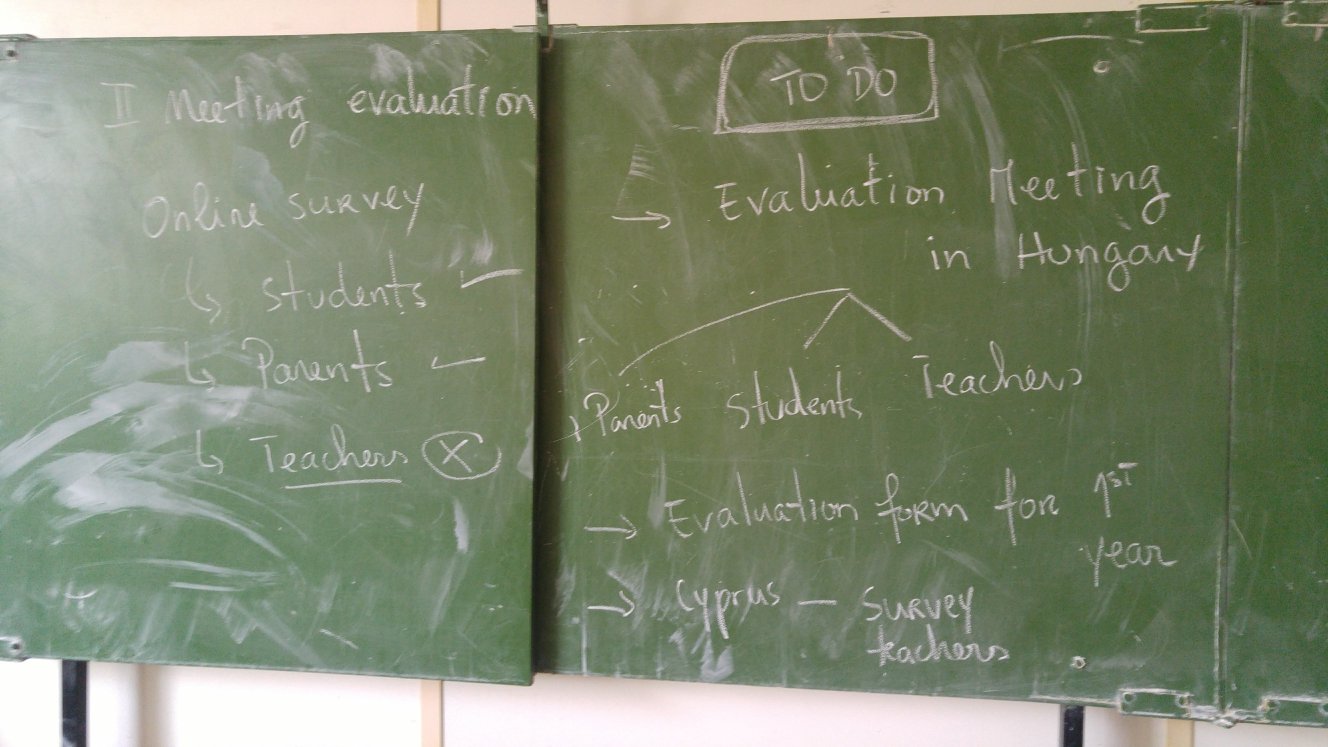 II Meeting evaluation
Online survey
↳ Students ✓
↳ Parents ✓
↳ Teachers X
TO DO
→ Evaluation Meeting
in Hungary
Parents Students Teachers
→ Evaluation form for 1st
year
→ Cyprus — survey
teachers